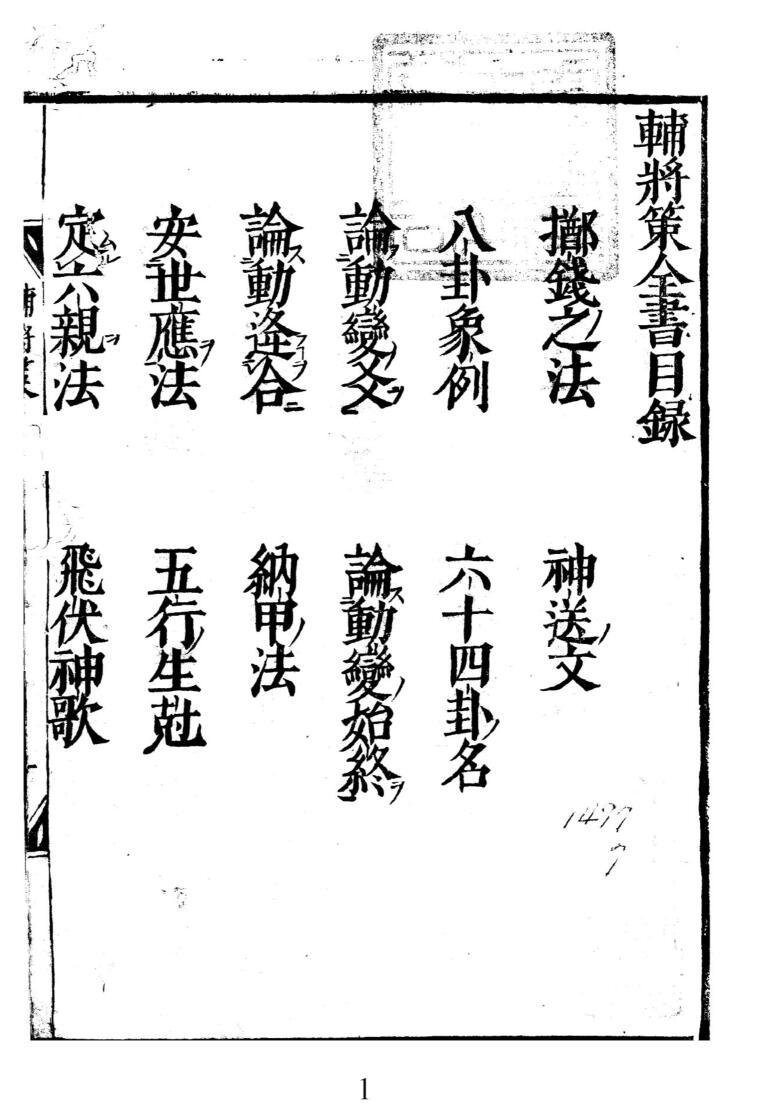 輔將策全書目録
擲錢之法
神送文
八卦象例
六十四卦名
論動變爻
論動變始終
論動逢合
納甲法
安世應法
五行生尅
定六親法
飛伏神歌
1